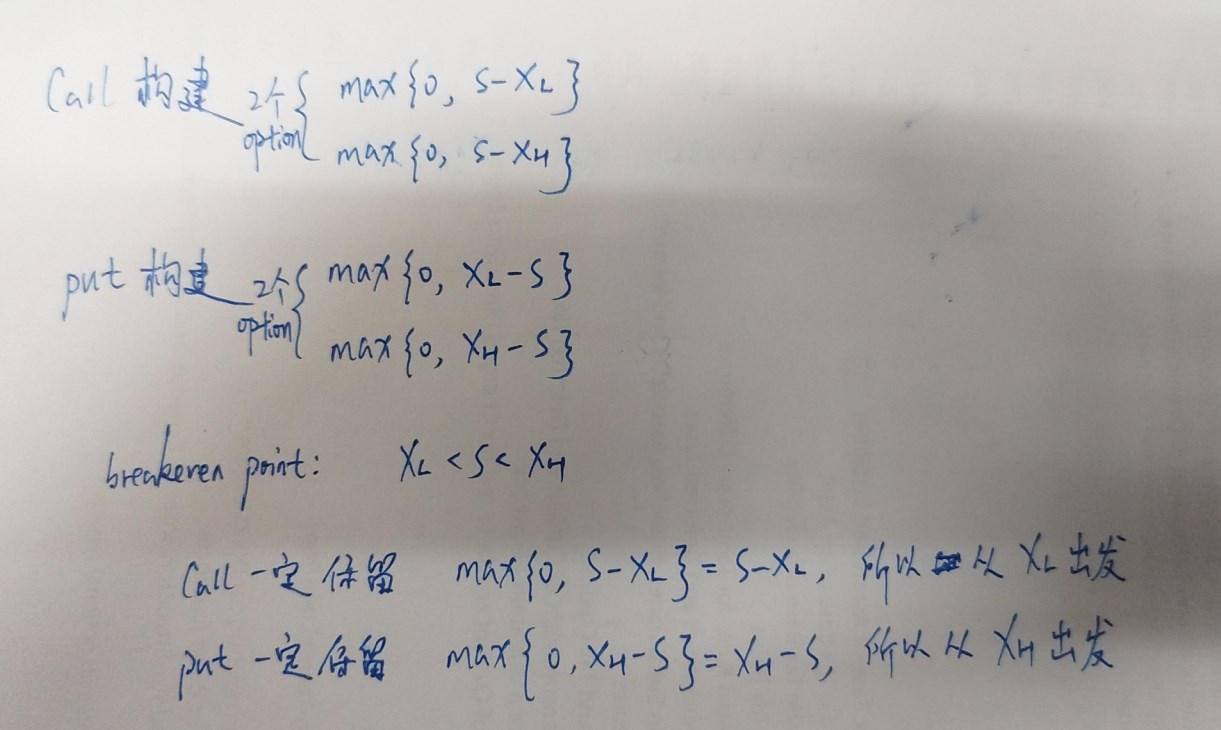 Call 构建 2个 option { max{0, S-XL}
max{0, S-XH}
put 构建 2个 option { max{0, XL-S}
max{0, XH-S}
breakeven point: XL < S < XH
Call 一定保留 max{0, S-XL} = S-XL, 所以从 XL 出发
put 一定保留 max{0, XH-S} = XH-S, 所以从 XH 出发